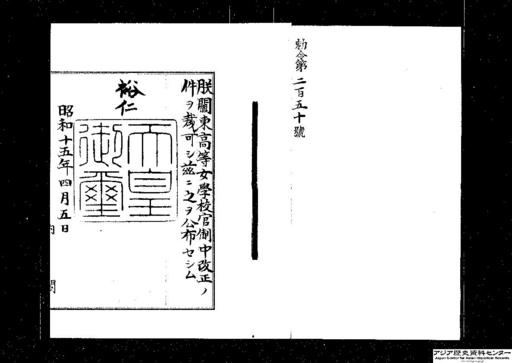 勅令第二百五十號
朕關東高等女學校官制中改正ノ
件ヲ裁可シ茲ニ之ヲ公布セシム
裕仁
天皇
御璽
昭和十五年四月五日
内閣
アジア歴史資料センター
Japan Center for Asian Historical Records